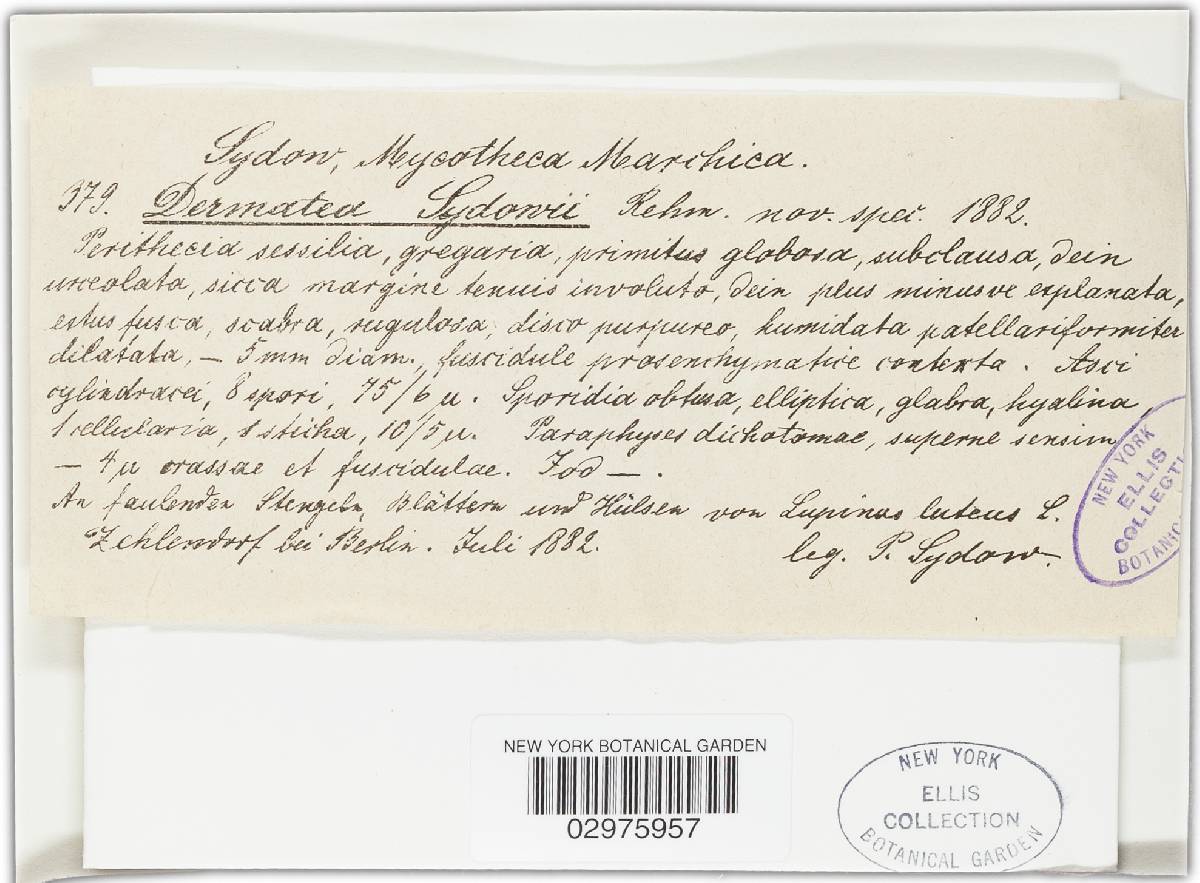 Sydow, Mycotheca Marchica.
379. Dermatea Sydowii Rehm. nov. spec. 1882.
Perithecia sessilia, gregaria, primitus globosa, subclausa, dein
urceolata, sicca margine tenuis involuto, dein plus minusve explanata,
extus fusca, scabra, rugulosa, disco purpureo, humidata patellariformiter
dilatata, – 5 mm diam., fuscidule prosenchymatice contexta. Asci
cylindracei, 8 spori, 75/6 µ. Sporidia obtusa, elliptica, glabra, hyalina,
1 cellularia, 1 sticha, 10/5 µ. Paraphyses dichotomae, superne sensim
– 4 µ crassae et fuscidulae. Jod –.
An faulenden Stengeln, Blättern und Hülsen von Lupinus luteus L.
Zehlendorf bei Berlin. Juli 1882. leg. P. Sydow.
NEW YORK
ELLIS
COLLECTI
BOTANIC
NEW YORK BOTANICAL GARDEN
02975957
NEW YORK
ELLIS
COLLECTION
BOTANICAL GARDEN